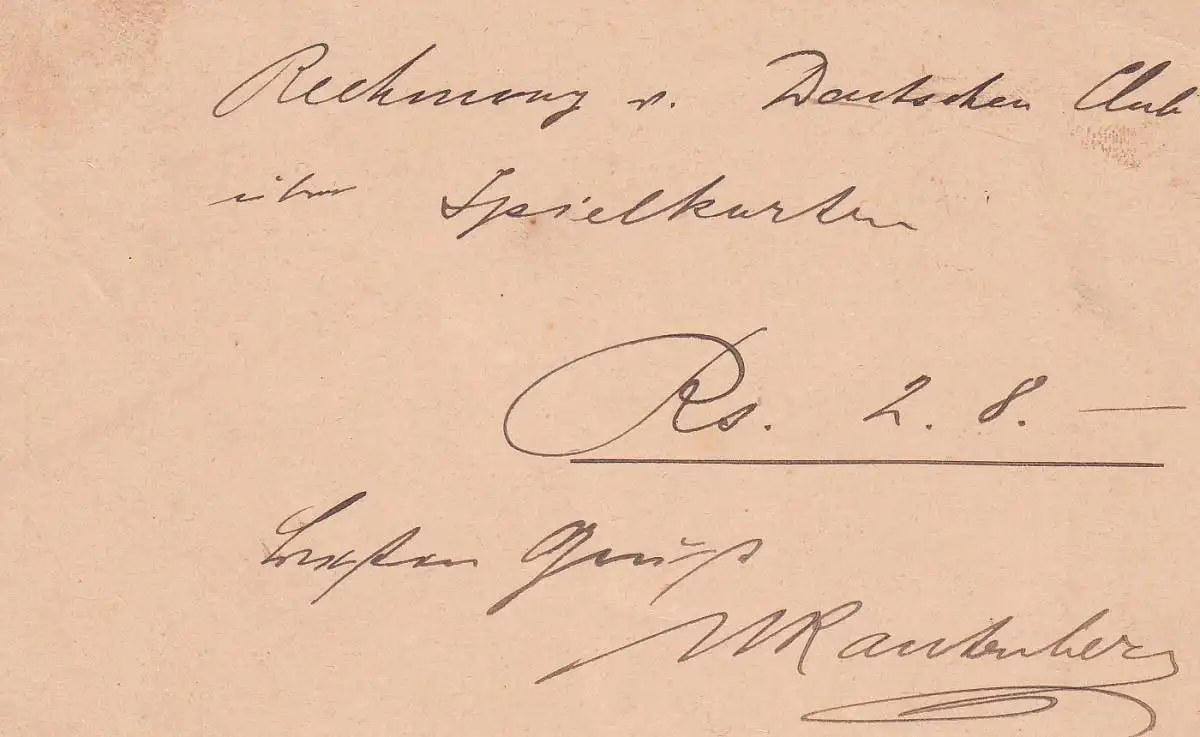 Rechnung v. Deutschen Club
über Spielkarten
Rs. 2. 8. —
besten Gruß
Rautenberg